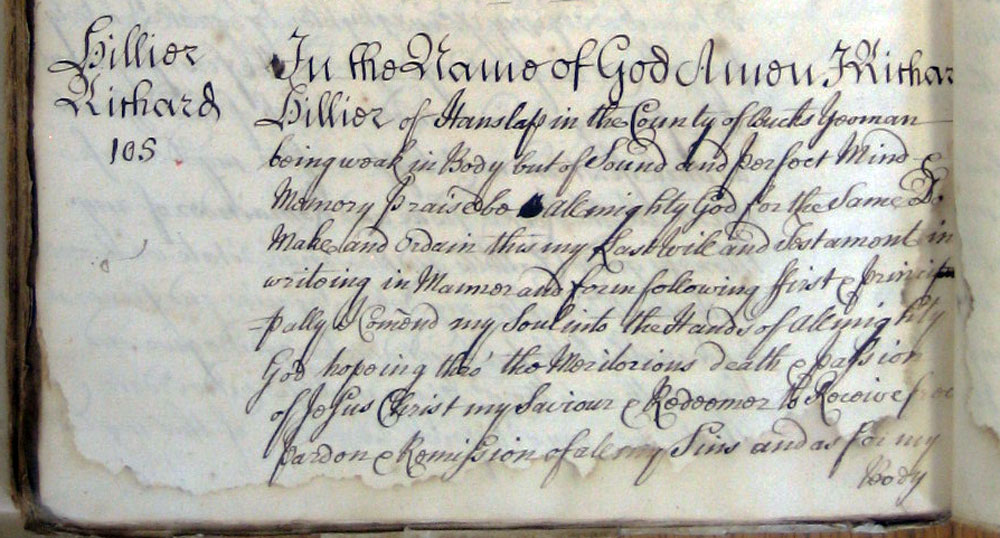 Hillier
Richard
105
In the Name of God Amen I Richar
Hillier of Hanslap in the County of Bucks Yeoman
being weak in Body but of Sound and perfect Mind &
Memory praised be Allmighty God for the Same Do
Make and Ordain this my Last Will and Testament in
writeing in Manner and form following ffirst & princip
=pally I Com̄end my Soul into the Hands of Allmighty
God hopeing thro' the Meritorious death & passion
of Jesus Christ my Saviour & Redeemer to Receive free
pardon & Remission of all my Sins and as for my
Body